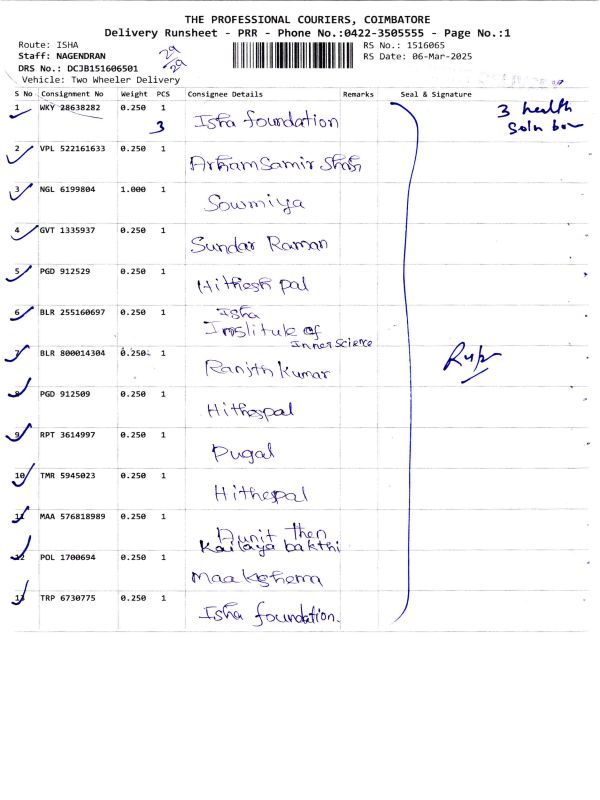 THE PROFESSIONAL COURIERS, COIMBATORE
Delivery Runsheet - PRR - Phone No.:0422-3505555 - Page No.:1
Route: ISHA
RS No.: 1516065
Staff: NAGENDRAN
29/29
RS Date: 06-Mar-2025
DRS No.: DCJB151606501
Vehicle: Two Wheeler Delivery
S No Consignment No Weight PCS Consignee Details Remarks Seal & Signature
1 WKY 28638282 0.250 1 Isha foundation
3
3 health
Soln box
2 VPL 522161633 0.250 1 Arham Samir Shah
3 NGL 6199804 1.000 1 Sowmiya
4 GVT 1335937 0.250 1 Sundar Raman
5 PGD 912529 0.250 1 Hithesh pal
6 BLR 255160697 0.250 1 Isha
Institute of
Inner Science
7 BLR 800014304 0.250 1 Ranjth Kumar
8 PGD 912509 0.250 1 Hithespal
9 RPT 3614997 0.250 1 Pugal
10 TMR 5945023 0.250 1 Hithepal
11 MAA 576818989 0.250 1 Then
Kailaya bakthi
12 POL 1700694 0.250 1 Maa Kshema
13 TRP 6730775 0.250 1 Isha foundation.